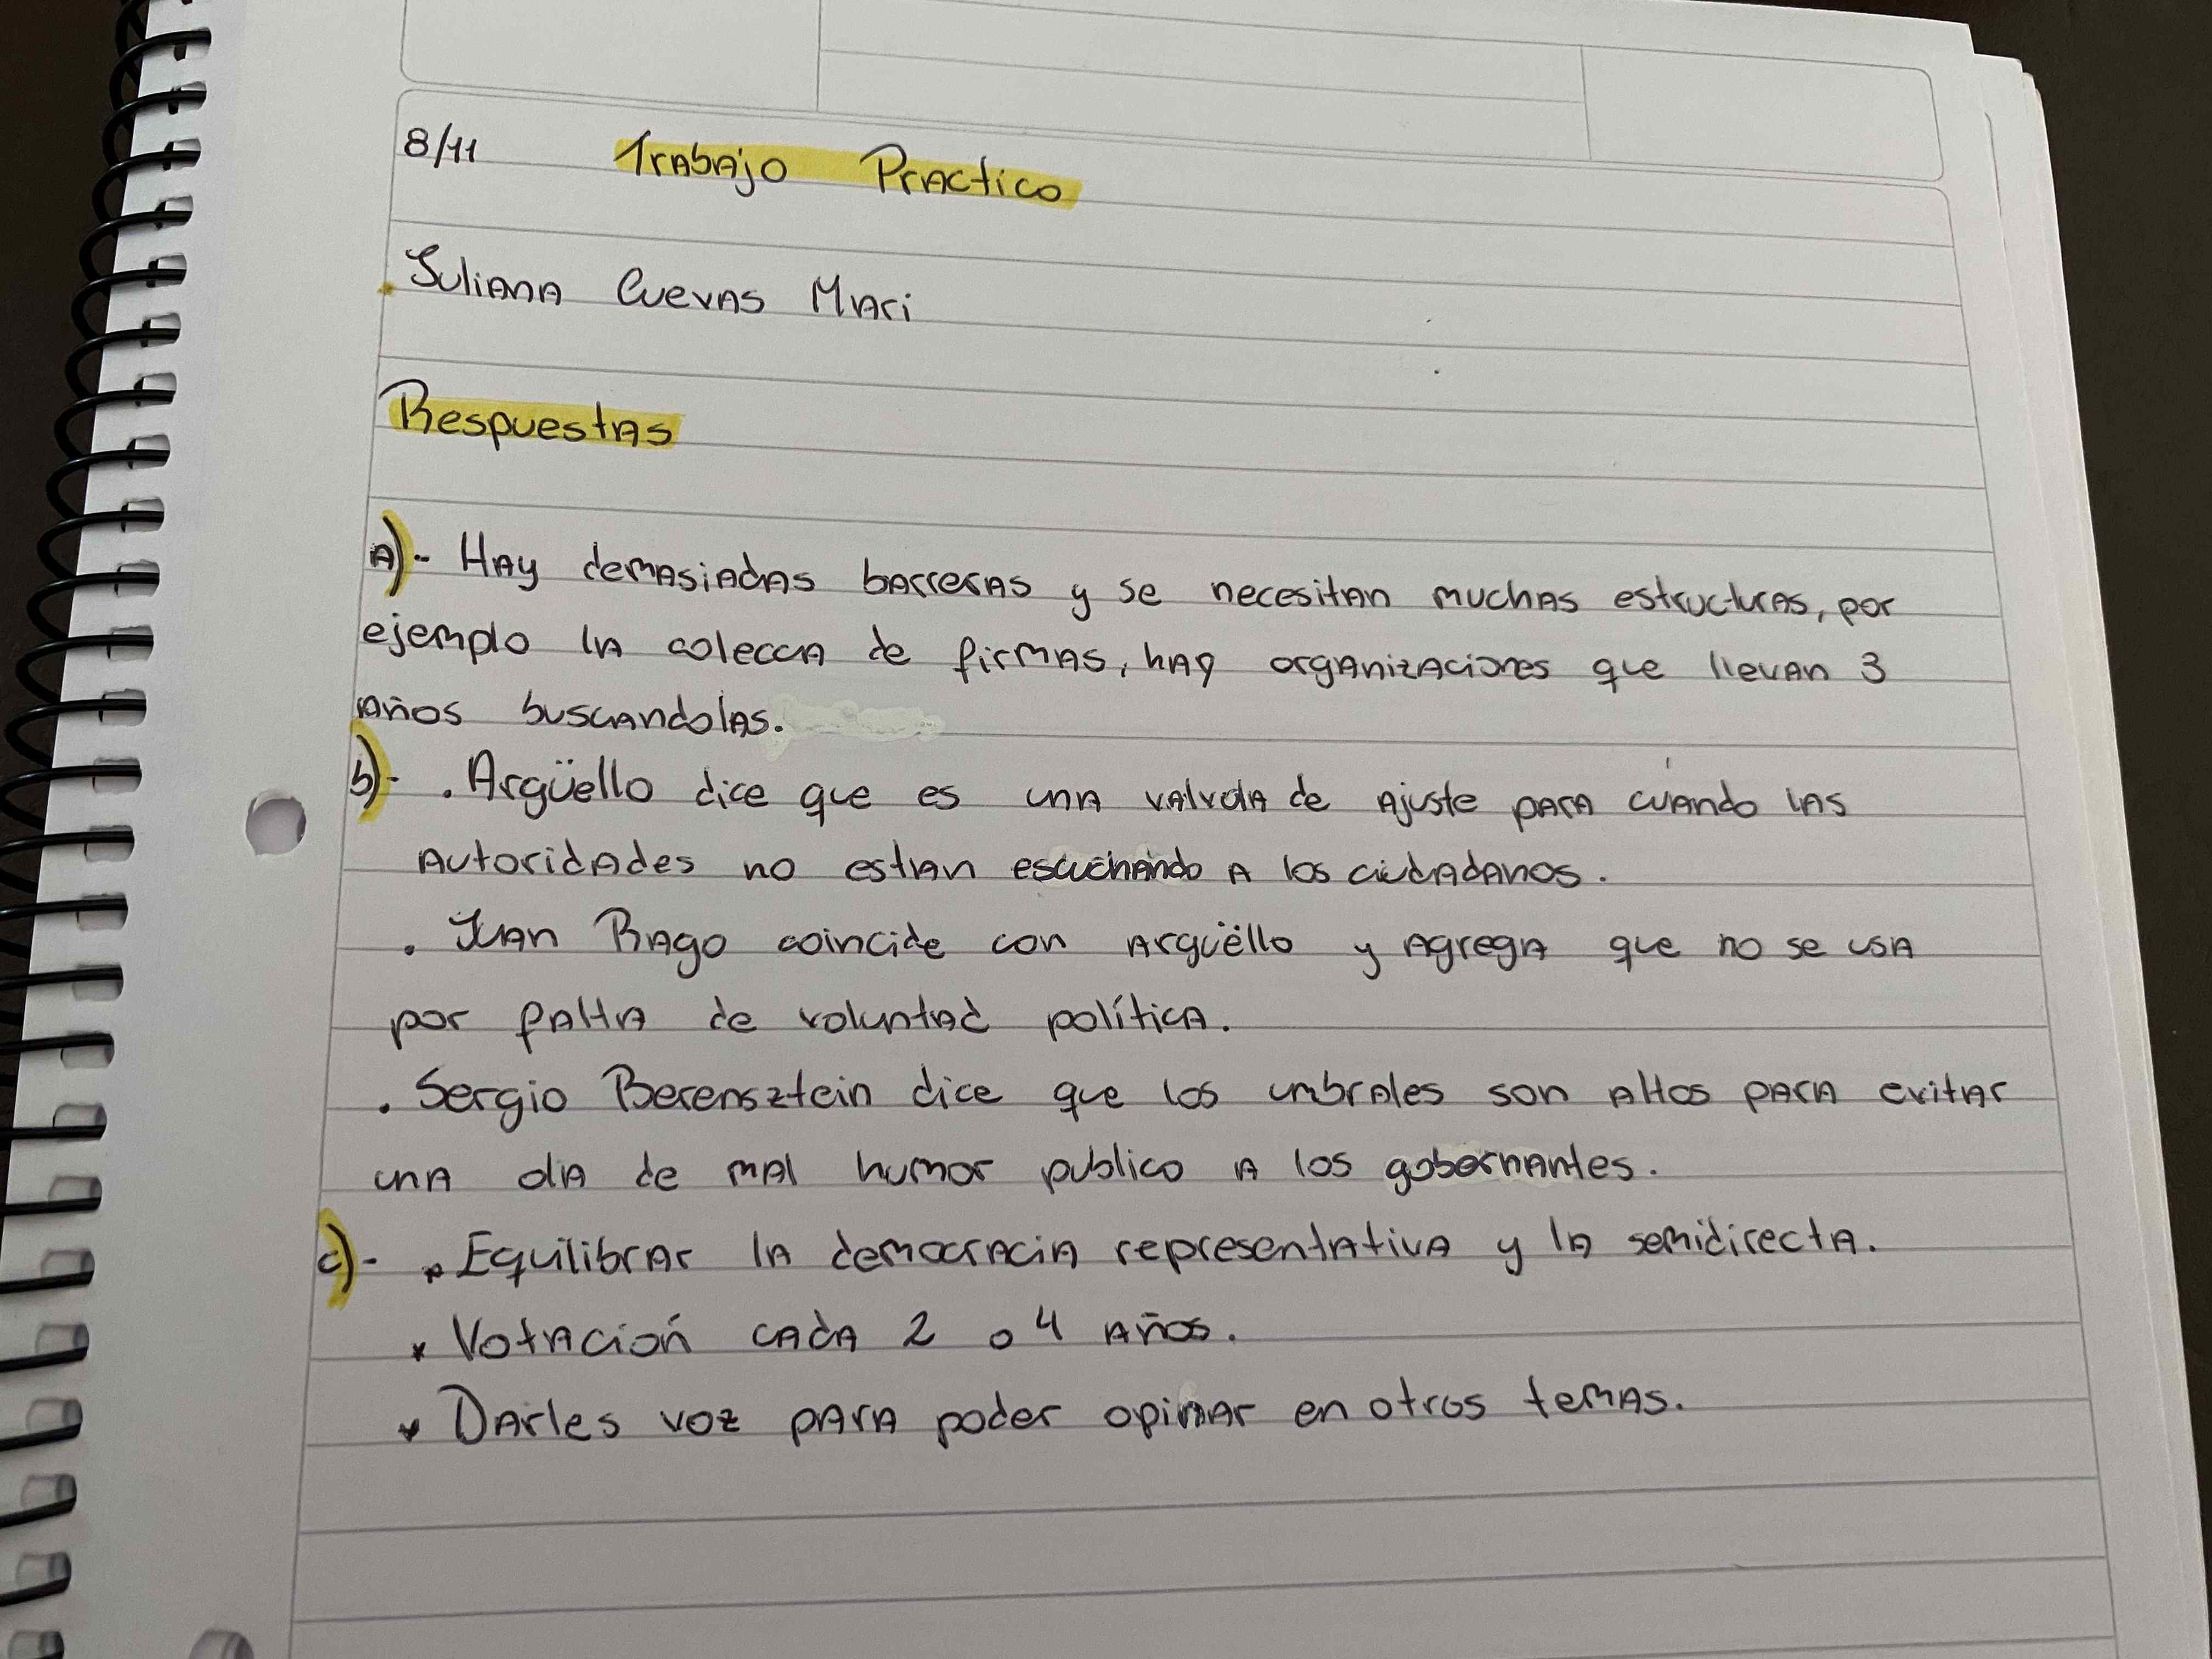 8/11 Trabajo Practico
Juliana Cuevas Mari
Respuestas
A)- Hay demasiadas barreras y se necesitan muchas estructuras, por
ejemplo la colecca de firmas, hay organizaciones que llevan 3
años buscandolas.
b)- . Argüello dice que es una valvola de ajuste para cuando las
autoridades no estan escuchando a los ciudadanos.
. Juan Rago coincide con argüello y agrega que no se usa
por falta de voluntad política.
. Sergio Berensztein dice que los umbrales son altos para evitar
una ola de mal humor publico a los gobernantes.
c)- * Equilibrar la democracia representativa y la semidirecta.
* Votación cada 2 o 4 años.
* Darles voz para poder opinar en otros temas.